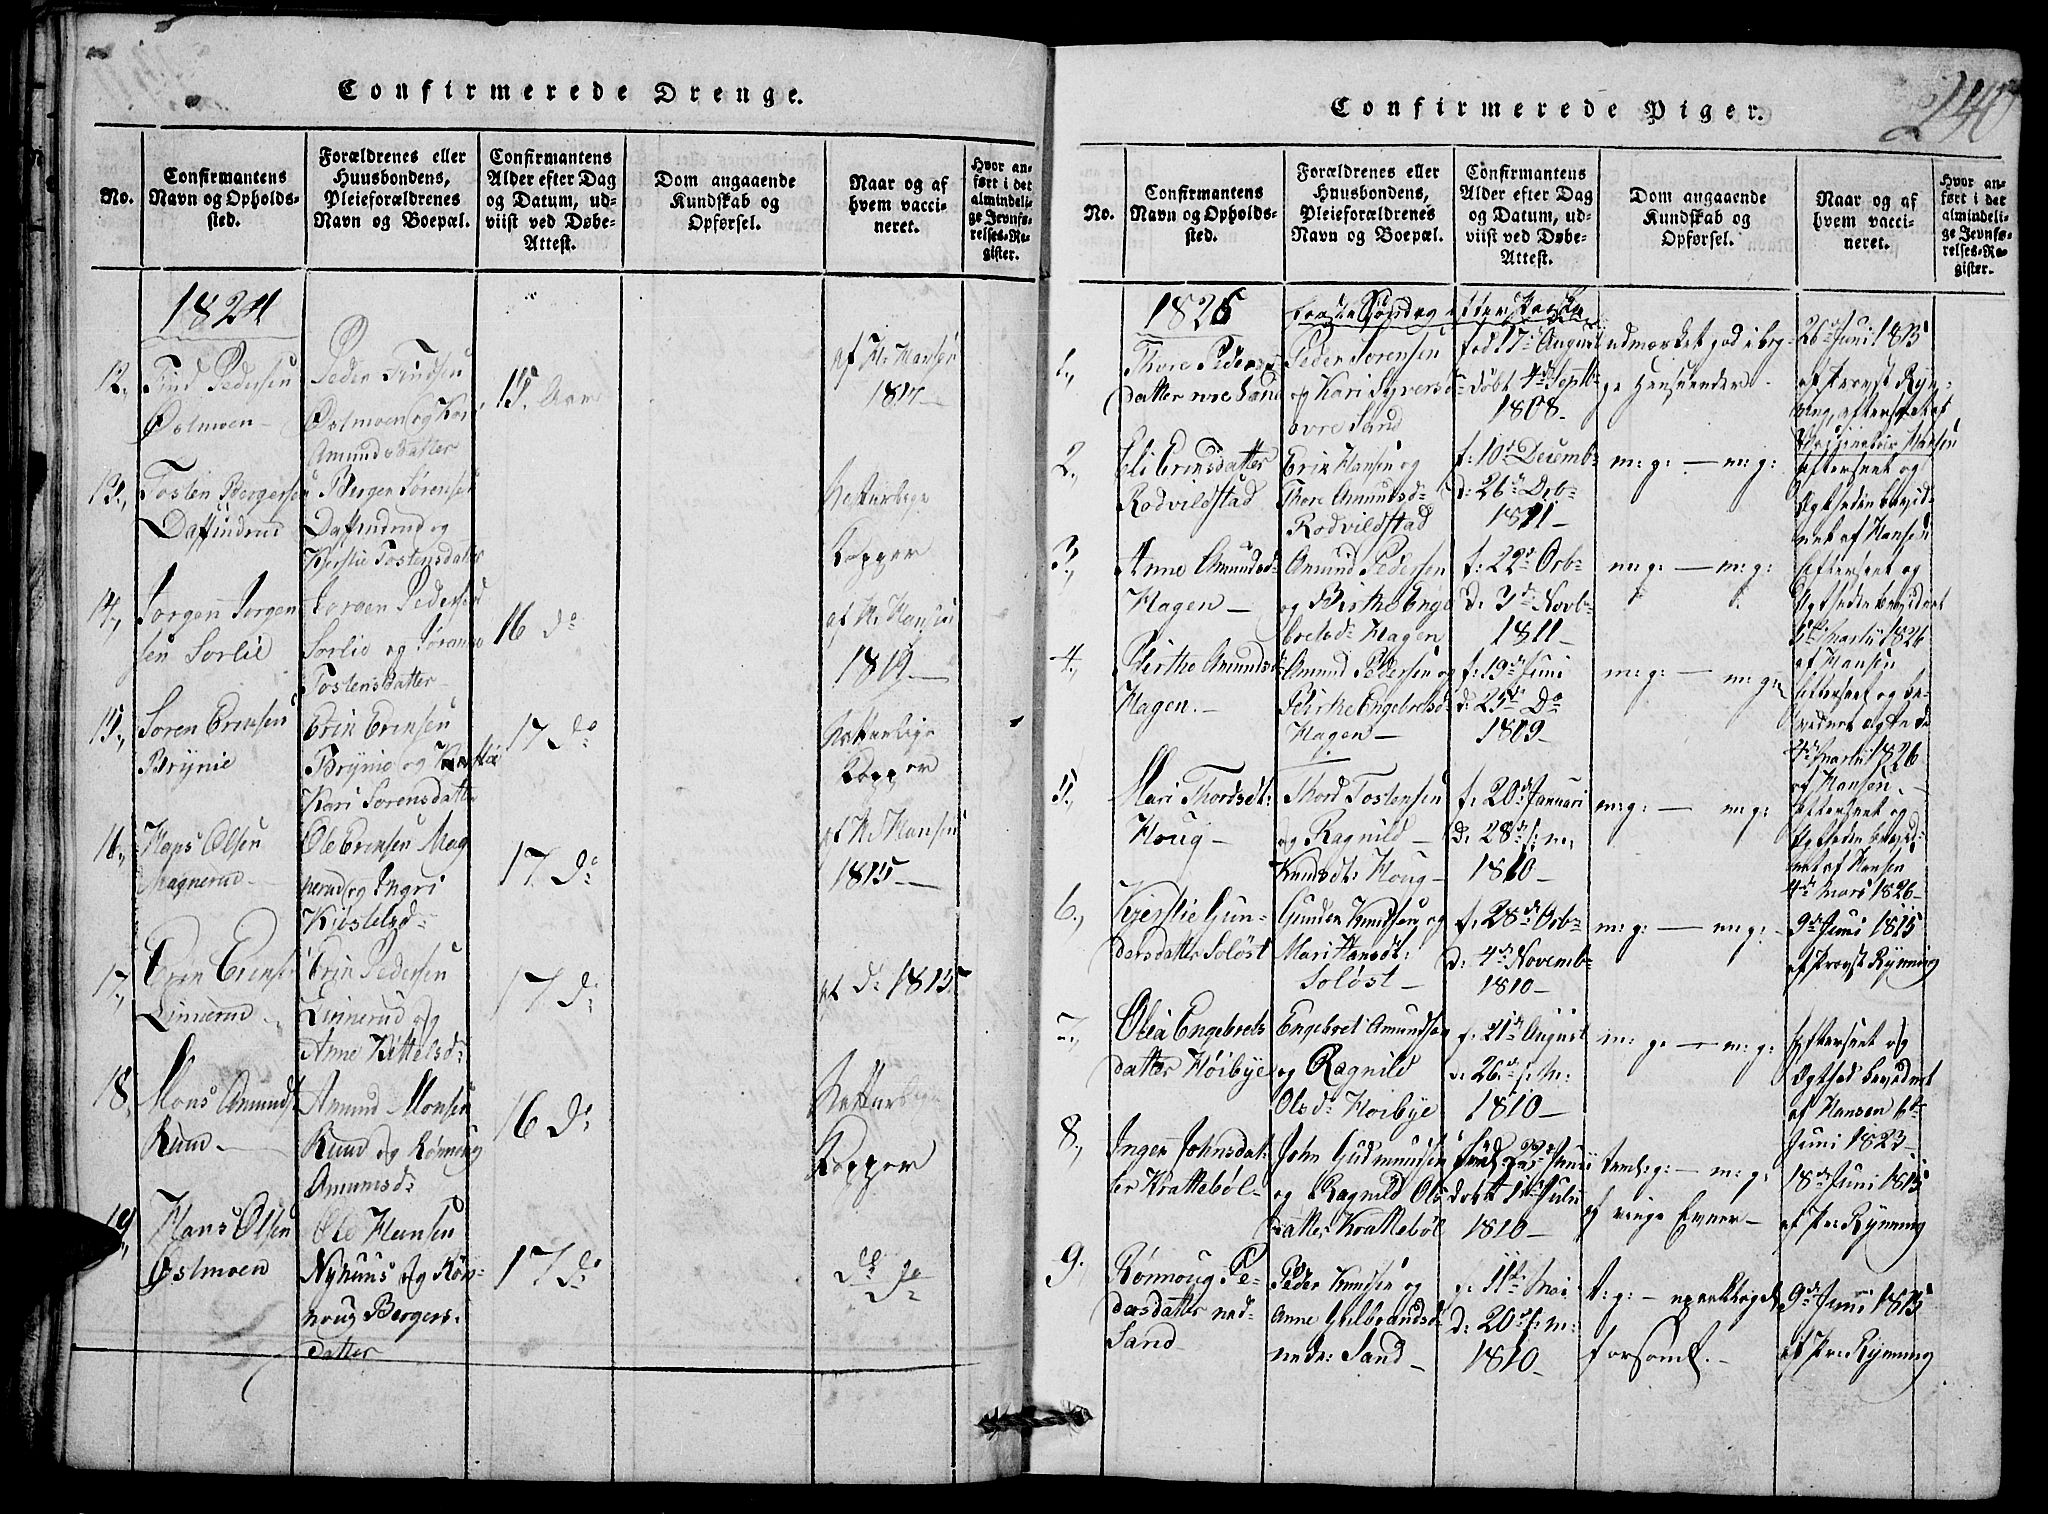 Confirmerede Drenge.
No.
Confirmantens
Navn og Opholds-
sted.
Forældrenes eller
Huusbondens,
Pleieforældrenes
Navn og Boepæl.
Confirmantens
Alder efter Dag
og Datum, ud-
viist ved Døbe-
Attest.
Dom angaaende
Kundskab og
Opførsel.
Naar og af
hvem vacci-
neret.
Hvor an-
ført i det
almindeli-
ge Jevnfø-
relses-Re-
gister.
1824
12.,
Find Pedersen
Østmoen
Peder Findsen
Østmoen og Kari
Amundsdatter
15. Aar
af Hr Hansen
1817
13.,
Tosten Bergersen
Daffindrud
Berger Sørensen
Daffindrud og
Kjerstie Tostensdatter
Naturlige
Kopper
14.,
Jørgen Jørgen
sen Sorlie
Jørgen Pedersen
Sorlie og
Tostensdatter
16 do
af Hr Hansen
1819
15.,
Soren Erensen
Brynie
Eren Erensen
Brynie og
Kari Sorensdatter
17 do
Naturlige
Kopper
16.,
Hans Olsen
Magnerud
Ole Erensen Mag
nerud og Ingri
Kiøstelsd:
17. do
af Hr Hansen
1815
17.,
Eren Erensen
Linnerud
Eren Pedersen
Linnerud og
Anne Kittelsd:
17 do
af do 1815
18.
Mons Amunds
Ruud
Amund Monsen
Ruud og Rønnoug
Amundsd:
16 do
Naturlige
Kopper
19.,
Hans Olsen
Østmoen
Ole Hansen
Nyhuus og Røn-
noug Bergers-
datter
17 do
do do
Confirmerede Piger.
240
No.
Confirmantens
Navn og Opholds-
sted.
Forældrenes eller
Huusbondens,
Pleieforældrenes
Navn og Boepæl.
Confirmantens
Alder efter Dag
og Datum, ud-
viist ved Døbe-
Attest.
Dom angaaende
Kundskab og
Opførsel.
Naar og af
hvem vacci-
neret.
Hvor an-
ført i det
almindeli-
ge Jevnfø-
relses-Re-
gister.
1826
første Søndag efter Paaske
1.,
Thore Peders
datter øvre Sand
Peder Sorensen
og Kari Syversd:
øvre Sand
fød 17de August
døbt 4de Septb:
1808
udmærket god i beg-
ge Henseender
26de Juni 1815
af Provst Ryn-
ning, efterseet af
Vaccinateur Hansen
2.,
Eli Erensdatter
Rodvildstad
Eren Hansen og
Thore Amundsd:
Rodvildstad
f: 10de Decemb:
d: 26de Deb:
1811
m: g: — m: g:
efterseet og
Ægtheden bevid-
net af Hansen
3.,
Anne Amundsd:
Hagen
Amund Pedersen
og Birthe Enge
bretsd: Hagen
f: 22de Octb:
d: 3de Novb:
1811
m: g: — m: g:
efterseet og
Ægtheden bevidnet
5te Martii 1826
af Hansen
4.,
Birthe Amundsd:
Hagen.
Amund Pedersen og
Birthe Engebretsd:
Hagen
f: 19de Juni
d: 25de do
1809
m: g: — m: g:
efterseet og be-
vidnet Ægte d:
4de Martii 1826
af Hansen
5.,
Mari Thordsdt:
Houg
Thord Tostensen
og Ragnild
Knudsdt: Houg
f: 20de Januari
d: 28de s: m:
1810
m: g: — m: g:
efterseet og
Ægtheden bevid-
net af Hansen
4de Mars 1826
6.,
Kjerstie Gun-
dersdatter Soløst
Gunder Knudsen og
Mari Hansdt:
Soløst
f: 28de Octb:
d: 4de Novemb:
1810
m: g: — m: g:
9de Juni 1815
af Provst Rynning
7.,
Olea Engebrets
datter Høibye
Engebret Amundsen
og Ragnild
Olsd: Høibye
f: 21de August
d: 26de s: m:
1810
m: g: — m: g:
Efterseet og
Ægthed bevidnet
af Hansen 6te
Juni 1823
8.,
Inger Johnsdat-
ter Krattebøl
John Gudmundsen
og Ragnild Ols
datter Krattebøl
døbt 1ste Julii
1810
teml: g: — m: g:
af ringe Evner
18de Juni 1815
af Pr: Rynning
9.
Rønnoug Pe-
dersdatter ned-
Sand
Peder Knudsen og
Anne Gulbrandsd:
nedr: Sand
f: 11te Mai
d: 20de s: m:
1810
t: g: —
forsømt.
9de Juni 1815
af Pr: Rynning